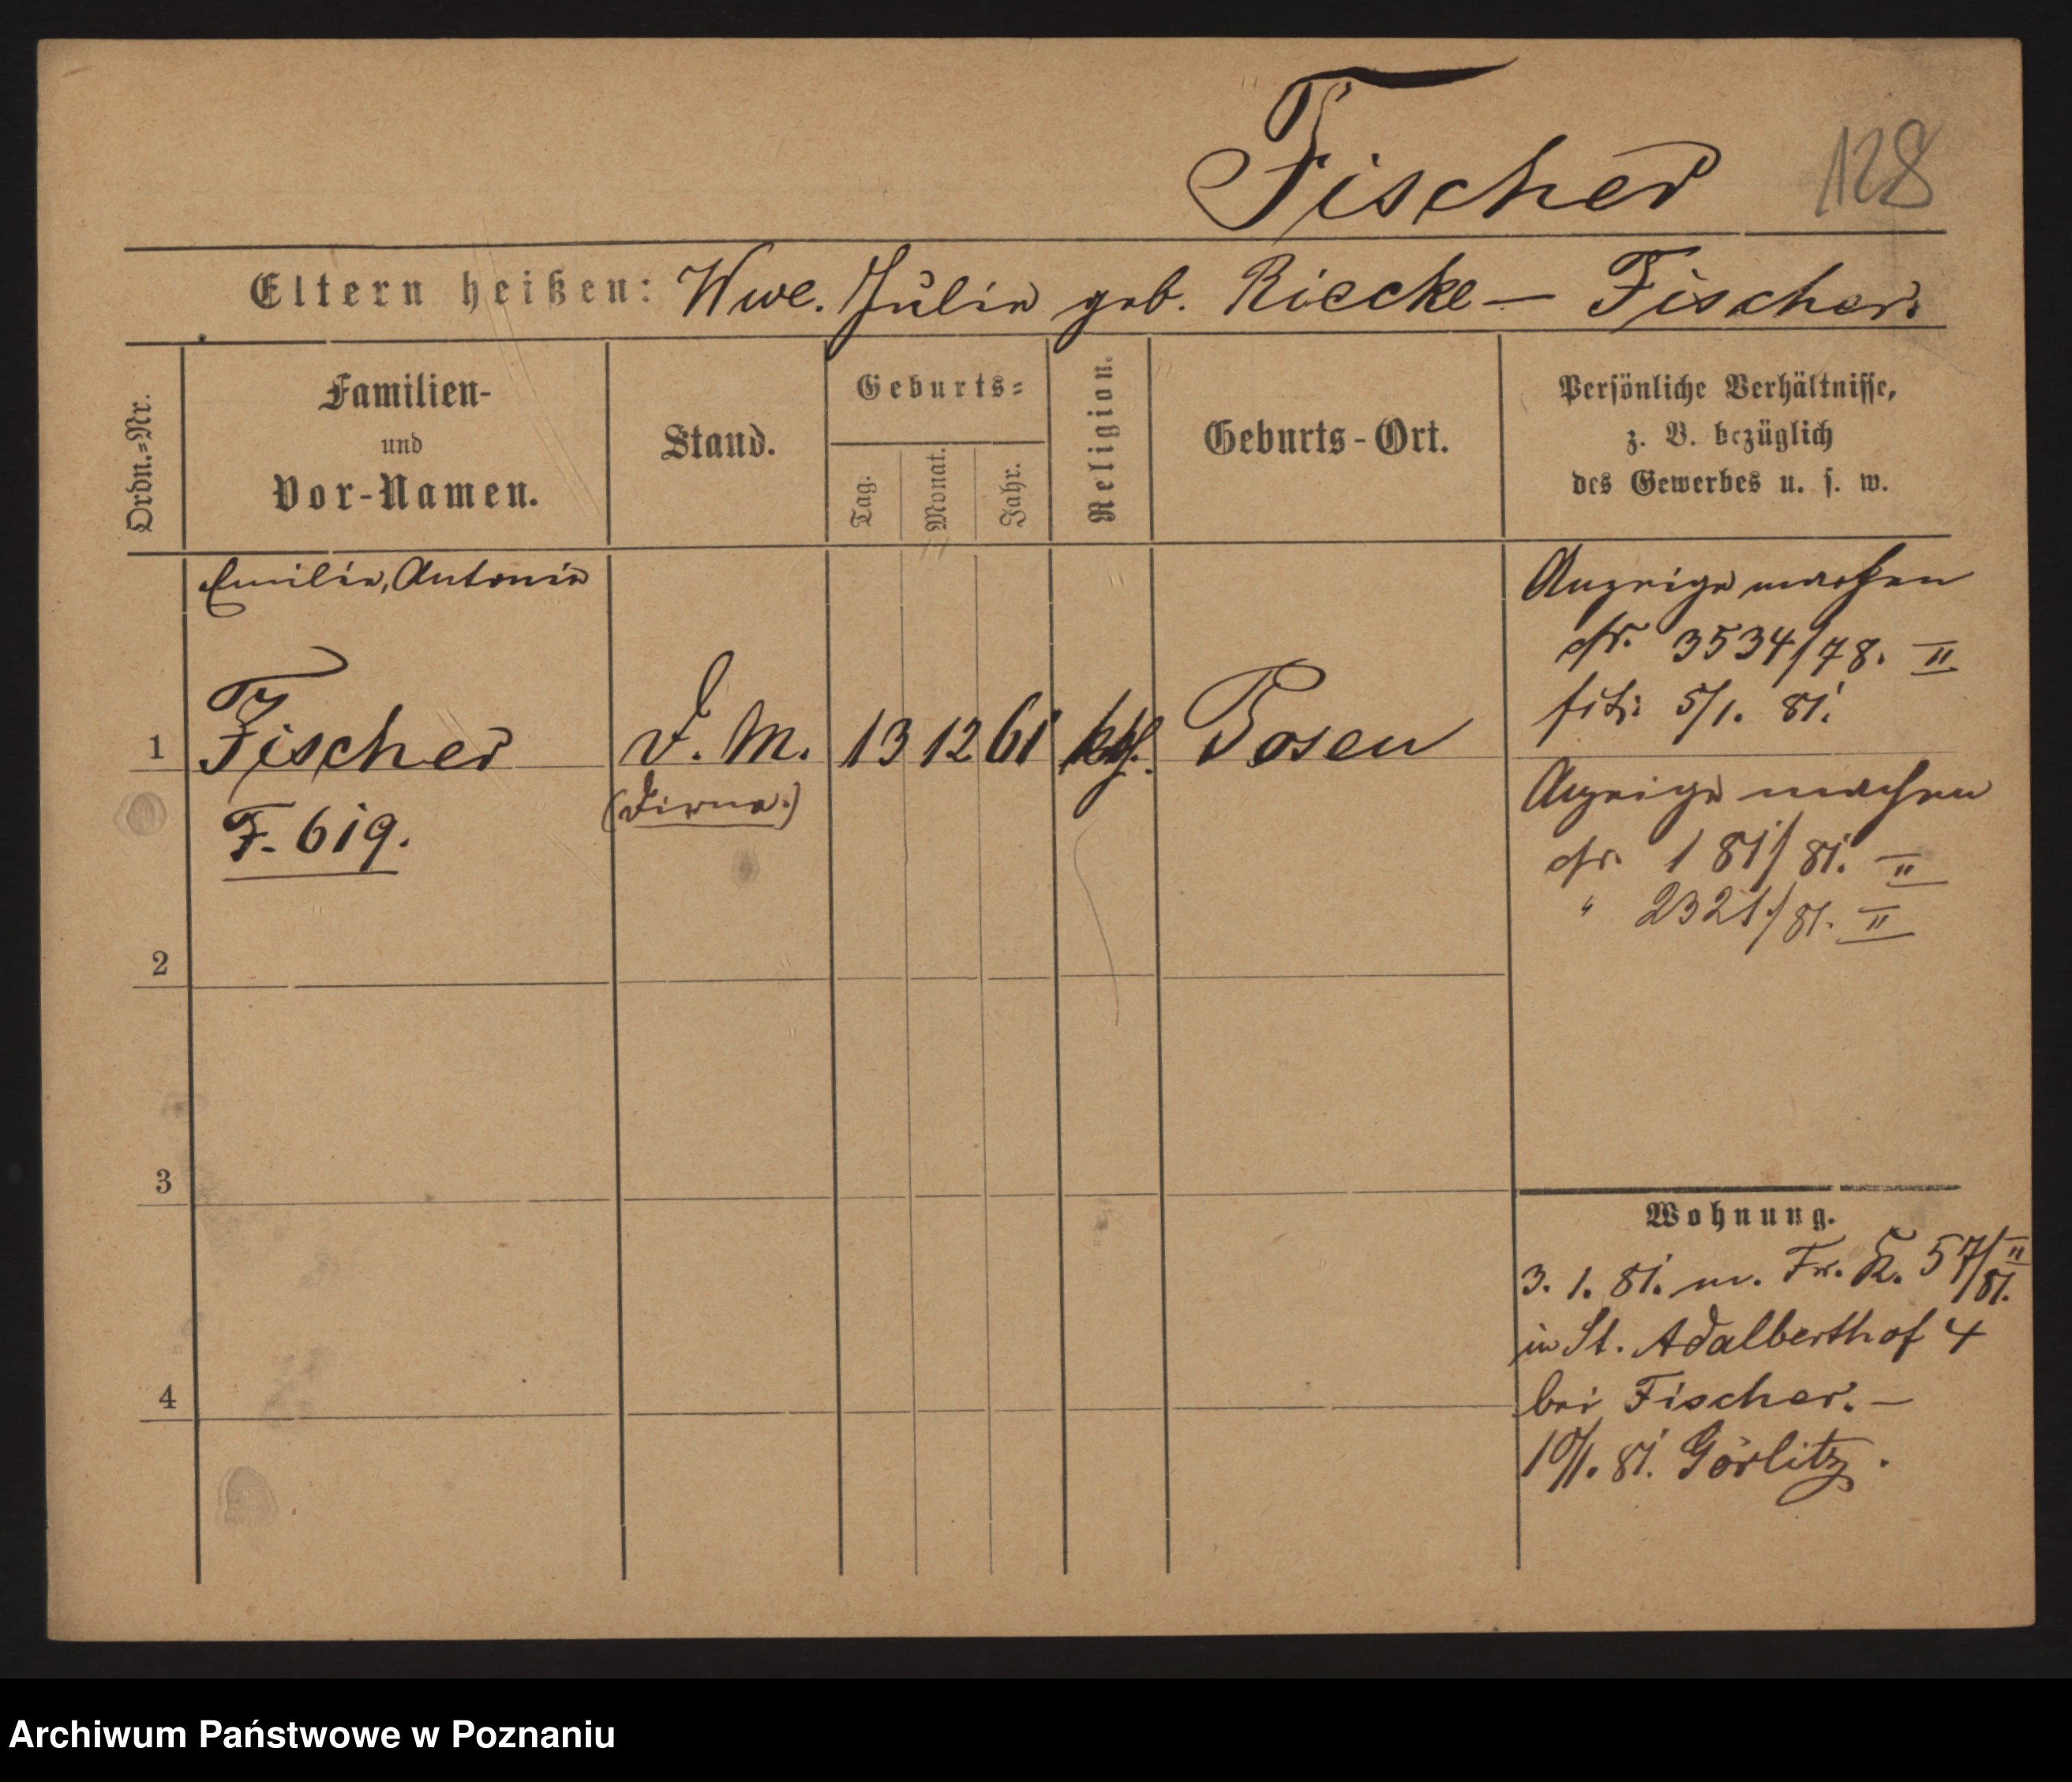 Fischer 128
Eltern heißen: Wwe. Julie geb. Riecke — Fischer.
Ordn.=Nr.
Familien-
und
Vor-Namen.
Stand.
Geburts=
Tag.
Monat.
Jahr.
Religion.
Geburts-Ort.
Persönliche Verhältnisse,
z. B. bezüglich
des Gewerbes u. s. w.
Emilie, Antonie
1 Fischer D. M. 13 12 61 kth. Posen
(Dirne.)
F. 619.
2
3
4
Anzeige machen
cfr. 3534/78. II
5/1. 81.
Anzeige machen
cfr. 181/81. II
" 2321/81. II
Wohnung.
3. 1. 81. m. Fr. K. 57/81. II
in St. Adalberthof 4
bei Fischer. —
10/1. 81. Görlitz.
Archiwum Państwowe w Poznaniu